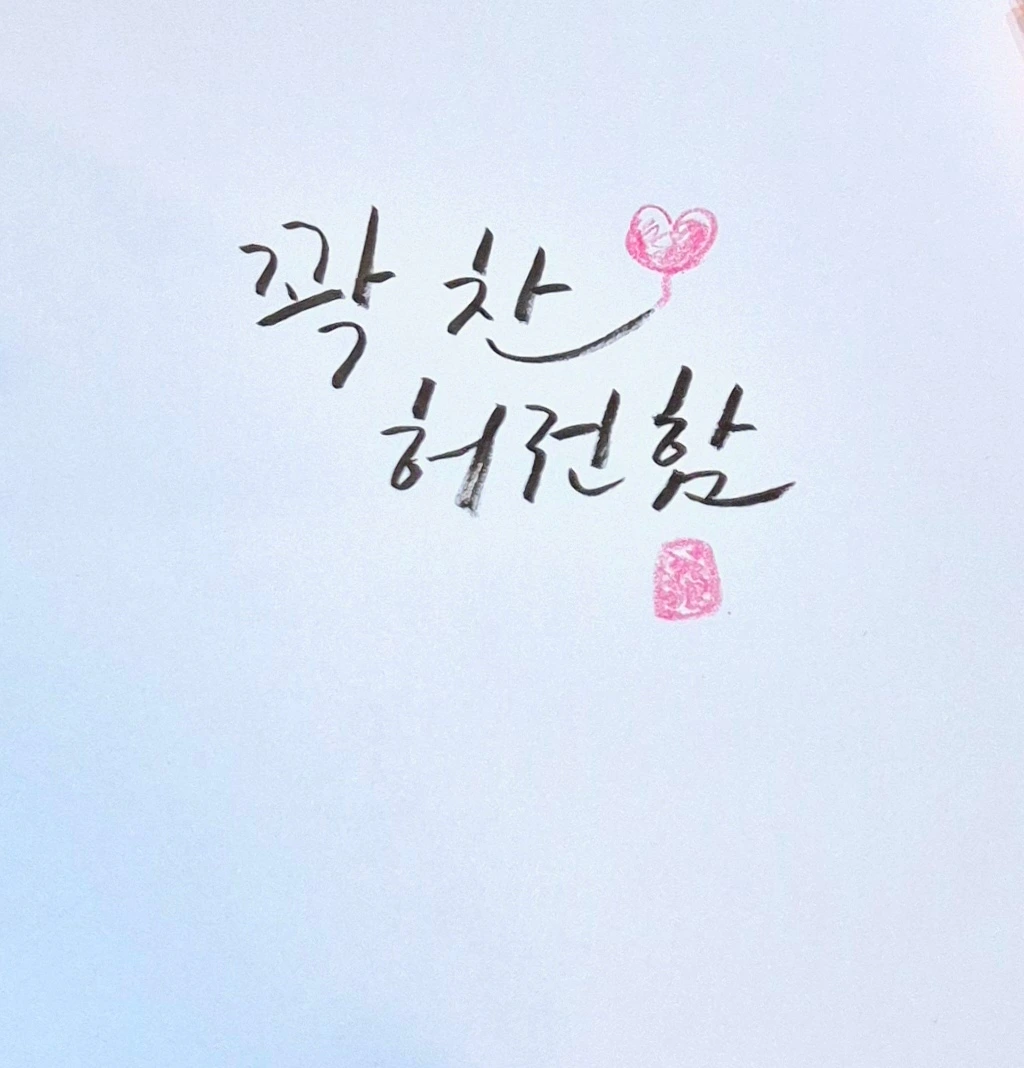 꽉 찬
허전함